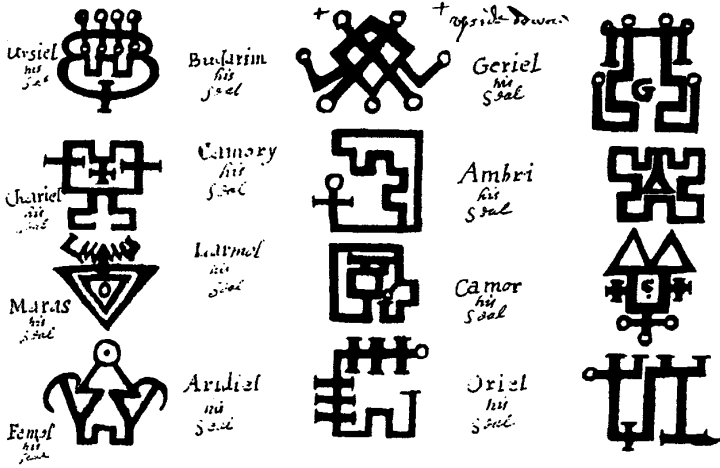 +
+ upside down
Ursiel
his
seal
Budarim
his
seal
Geriel
his
Seal
G
Chariel
his
seal
Camory
his
seal
Ambri
his
Seal
Maras
his
seal
Larmol
his
seal
Camor
his
Seal
Femol
his
seal
Aridiel
his
Seal
Oriel
his
Seal